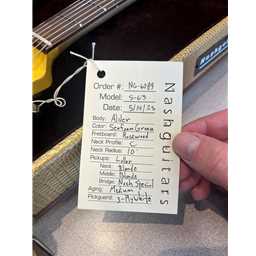 Order #: NG-6789
Model: S-63
Date: 5/14/23
Body: Alder
Color: Seafoam Green
Fretboard: Rosewood
Neck Profile: C
Neck Radius: 10"
Pickups: Lollar
Neck: Blonde
Middle: Blonde
Bridge: Nash Special
Aging: Medium
Pickguard: 3-Ply White
Nashguitars